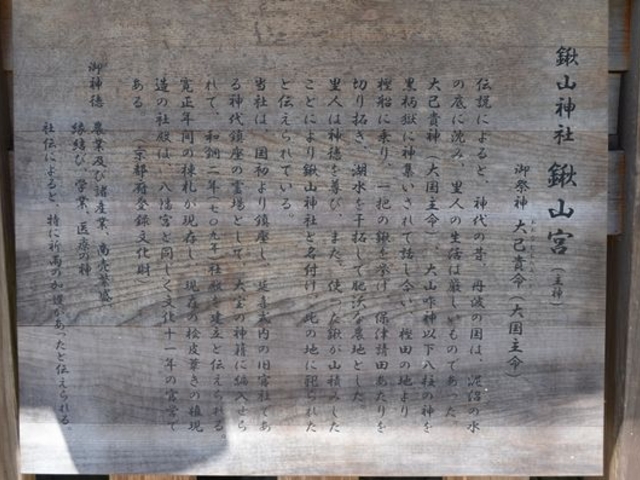 鍬山神社 鍬山宮（主神）
御祭神 大己貴命（大国主命）
伝説によると、神代の昔、丹波の国は、泥沼の水
の底に沈み、里人の生活は厳しいものであった。
大己貴神（大国主命）、大山咋神以下八柱の神を
黒柄嶽に神集いされて話し合い、樫田の地より
樫船に乗り、一把の鍬を挙げ、保津請田あたりを
切り拓き、湖水を干拓して肥沃な農地とした。
里人は神徳を尊び、また、使った鍬が山積みした
ことにより鍬山神社と名付け、此の地に祀られた
と伝えられている。
当社は、国初より鎮座し、延喜式内の旧官社であ
る神代鎮座の霊場として、大宝の神籍に編入せら
れて、和銅二年（七〇九年）社殿を建立と伝えられる。
寛正年間の棟札が現存し、現存の桧皮葺きの
造の社殿は、八幡宮と同じく文化十一年の造営で
ある。（京都府登録文化財）
御神徳 農業及び諸産業、商売繁盛
縁結び、学業、医療の神
社伝によると、特に祈雨の加護があったと伝えられる。